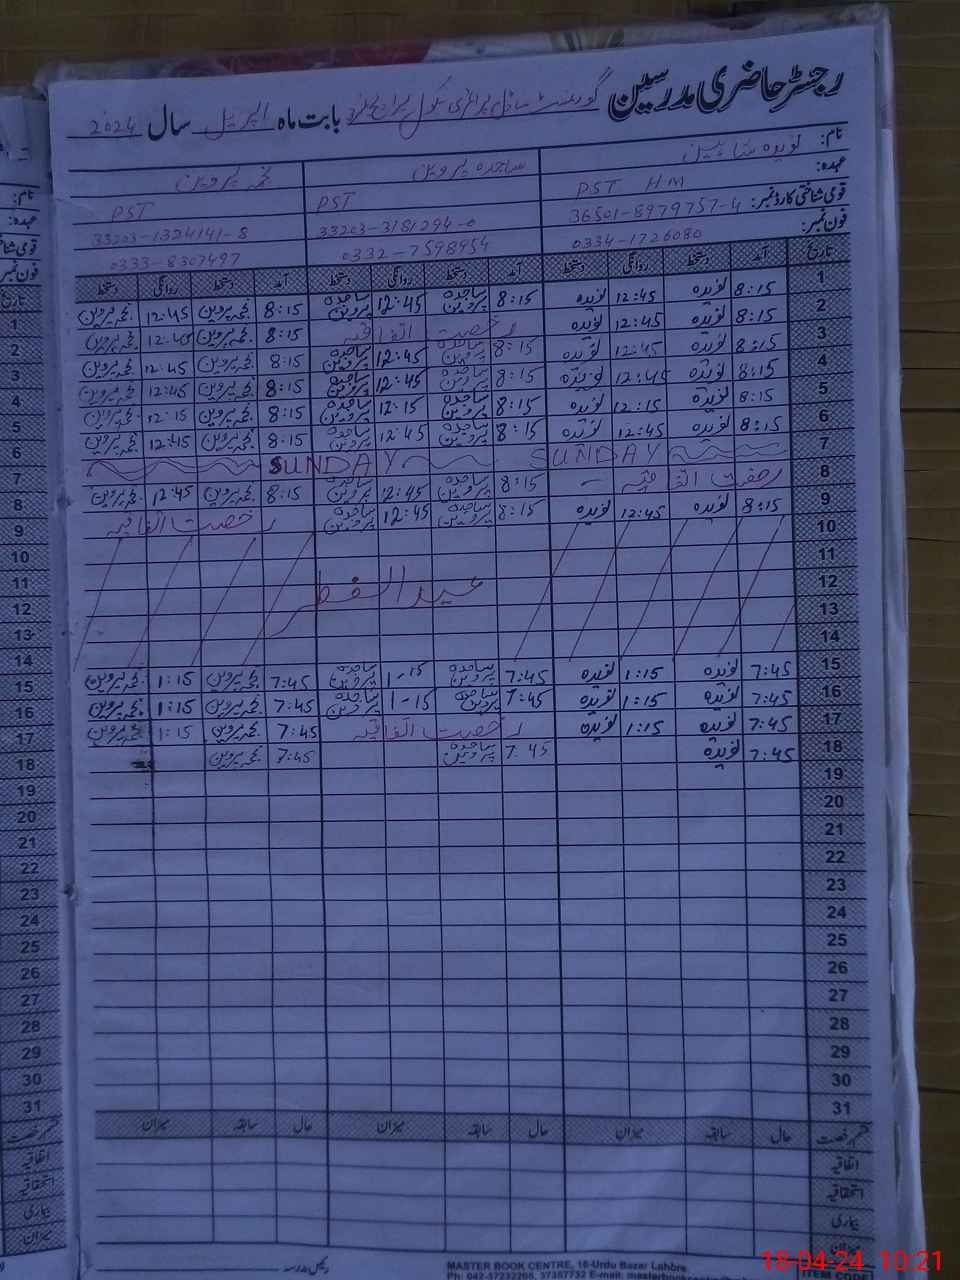 رجسٹر حاضری مدرسین گورنمنٹ ماڈل پرائمری سکول بابت ماہ اپریل سال 2024
نام: نویدہ شاہین ساجدہ پروین نجمہ پروین
عہدہ: PST HM PST PST
قومی شناختی کارڈ نمبر: 36501-8979757-4 33203-3181294-0 33203-1324141-8
فون نمبر: 0334-1726080 0332-7598954 0333-8307497
تاریخ آمد دستخط روانگی دستخط آمد دستخط روانگی دستخط آمد دستخط روانگی دستخط
1 8:15 نویدہ 12:45 نویدہ 8:15 ساجدہ پروین 12:45 ساجدہ پروین 8:15 نجمہ پروین 12:45 نجمہ پروین
2 8:15 نویدہ 12:45 نویدہ رخصت اتفاقیہ 8:15 نجمہ پروین 12:45 نجمہ پروین
3 8:15 نویدہ 12:45 نویدہ 8:15 ساجدہ پروین 12:45 ساجدہ پروین 8:15 نجمہ پروین 12:45 نجمہ پروین
4 8:15 نویدہ 12:45 نویدہ 8:15 ساجدہ پروین 12:45 ساجدہ پروین 8:15 نجمہ پروین 12:45 نجمہ پروین
5 8:15 نویدہ 12:15 نویدہ 8:15 ساجدہ پروین 12:15 ساجدہ پروین 8:15 نجمہ پروین 12:15 نجمہ پروین
6 8:15 نویدہ 12:45 نویدہ 8:15 ساجدہ پروین 12:45 ساجدہ پروین 8:15 نجمہ پروین 12:45 نجمہ پروین
7 SUNDAY SUNDAY
8 رخصت اتفاقیہ 8:15 ساجدہ پروین 12:45 ساجدہ پروین 8:15 نجمہ پروین 12:45 نجمہ پروین
9 8:15 نویدہ 12:45 نویدہ 8:15 ساجدہ پروین 12:45 ساجدہ پروین رخصت اتفاقیہ
10
11
12 عید الفطر
13
14
15 7:45 نویدہ 1:15 نویدہ 7:45 ساجدہ پروین 1-15 ساجدہ پروین 7:45 نجمہ پروین 1:15 نجمہ پروین
16 7:45 نویدہ 1:15 نویدہ 7:45 ساجدہ پروین 1-15 ساجدہ پروین 7:45 نجمہ پروین 1:15 نجمہ پروین
17 7:45 نویدہ 1:15 نویدہ رخصت اتفاقیہ 7:45 نجمہ پروین 1:15 نجمہ پروین
18 7:45 نویدہ 7:45 ساجدہ پروین 7:45 نجمہ پروین
19
20
21
22
23
24
25
26
27
28
29
30
31
قسم رخصت حال سابقہ میزان حال سابقہ میزان حال سابقہ میزان
اتفاقیہ
استحقاقیہ
بیماری
میزان
رئیس مدرسہ
MASTER BOOK CENTRE, 16-Urdu Bazar Lahore.
18-04-24 10:21
نام:
عہدہ:
فون نمبر:
تاریخ
1
2
3
4
5
6
7
8
9
10
11
12
13
14
15
16
17
18
19
20
21
22
23
24
25
26
27
28
29
30
31
قسم رخصت
اتفاقیہ
استحقاقیہ
بیماری
میزان